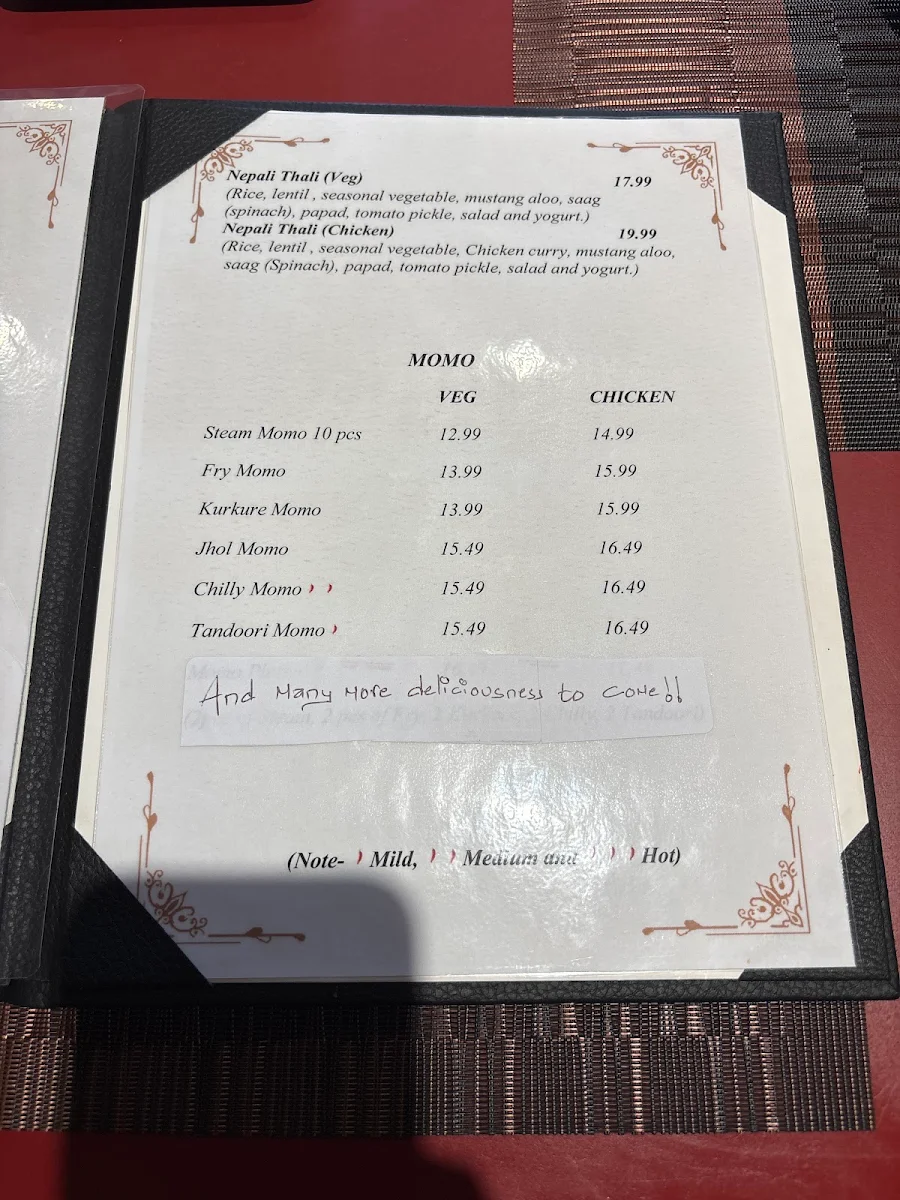 Nepali Thali (Veg) 17.99
(Rice, lentil , seasonal vegetable, mustang aloo, saag
(spinach), papad, tomato pickle, salad and yogurt.)
Nepali Thali (Chicken) 19.99
(Rice, lentil , seasonal vegetable, Chicken curry, mustang aloo,
saag (Spinach), papad, tomato pickle, salad and yogurt.)
MOMO
VEG CHICKEN
Steam Momo 10 pcs 12.99 14.99
Fry Momo 13.99 15.99
Kurkure Momo 13.99 15.99
Jhol Momo 15.49 16.49
Chilly Momo 15.49 16.49
Tandoori Momo 15.49 16.49
And Many More deliciousness to come!!
(Note- Mild, Medium and Hot)